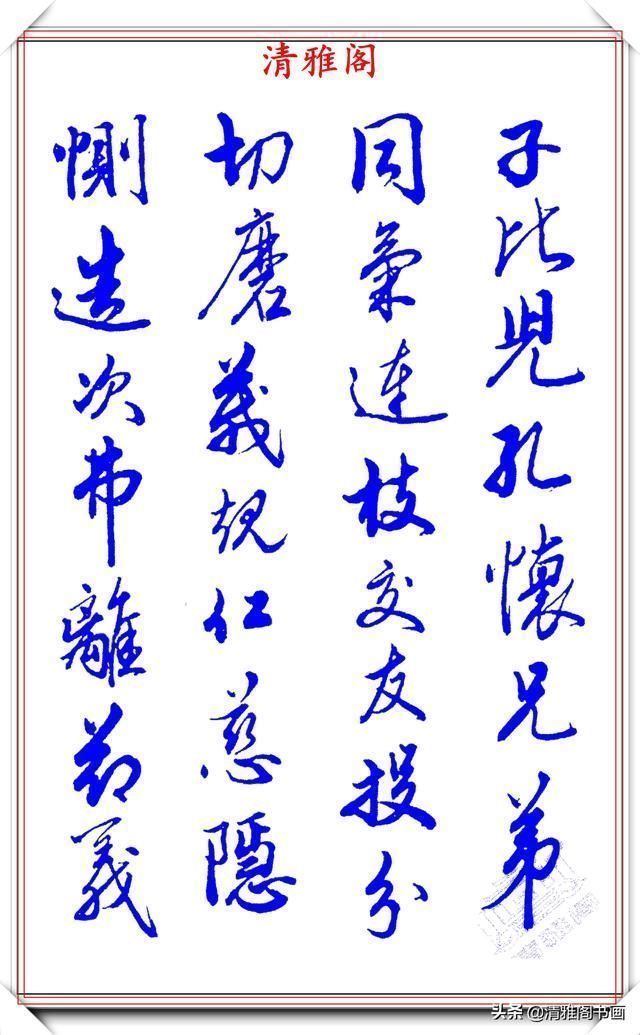 清雅阁
子比兒孔懷兄弟
同氣連枝交友投分
切磨箴規仁慈隱
惻造次弗離節義
头条 @清雅阁书画